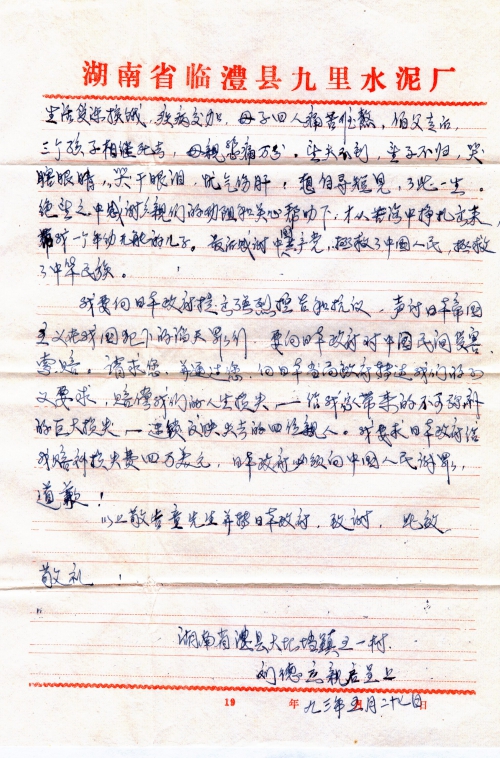 湖南省临澧县九里水泥厂
生活负连损残，疾病交加，母子四人痛苦怅熬，伯父去后，
三个孩子相继死去，母亲悲痛万分。望夫不到，望子不归，哭
瞎眼睛，哭干眼泪，忧气伤肝，想自寻短见，了此一生。
绝望之中感谢乡亲们的劝阻和关心帮助下，才从苦海中挣扎过来，
我一个年幼无能的儿子。最后感谢中国共产党，拯救了中国人民，拯救
了中华民族。
我要向日本政府提出强烈控告和抗议，声讨日本帝国
主义在我国犯下的滔天罪行，要向日本政府对中国民间受害
索赔。请求您，并通过您，向日本当局政府转达我们的正
义要求，赔偿我们的人生损失——给我家带来的不可弥补
的巨大损失——连续反映失去的四位亲人。我要求日本政府给
我赔补损失费四万美元，日本政府必须向中国人民谢罪，
道歉！
以上敬告童先生并转日本政府，致谢，此致
敬礼！
湖南省澧县大堰垱镇三一村
刘德 亲启呈上
19 年 月 日
九三年五月二十七日